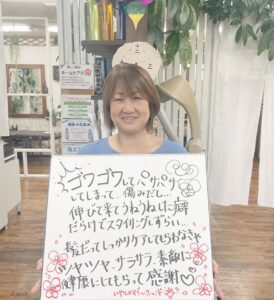 ゴワゴワしてパサパサ
してしまって…傷みだし…
伸びてきてうねうねした癖
だらけでスタイリングしずらい…
髪だってしっかりケアしてもらおなきゃ
ツヤツヤ、サラサラ、素敵に
健康にしてもらって感謝♡